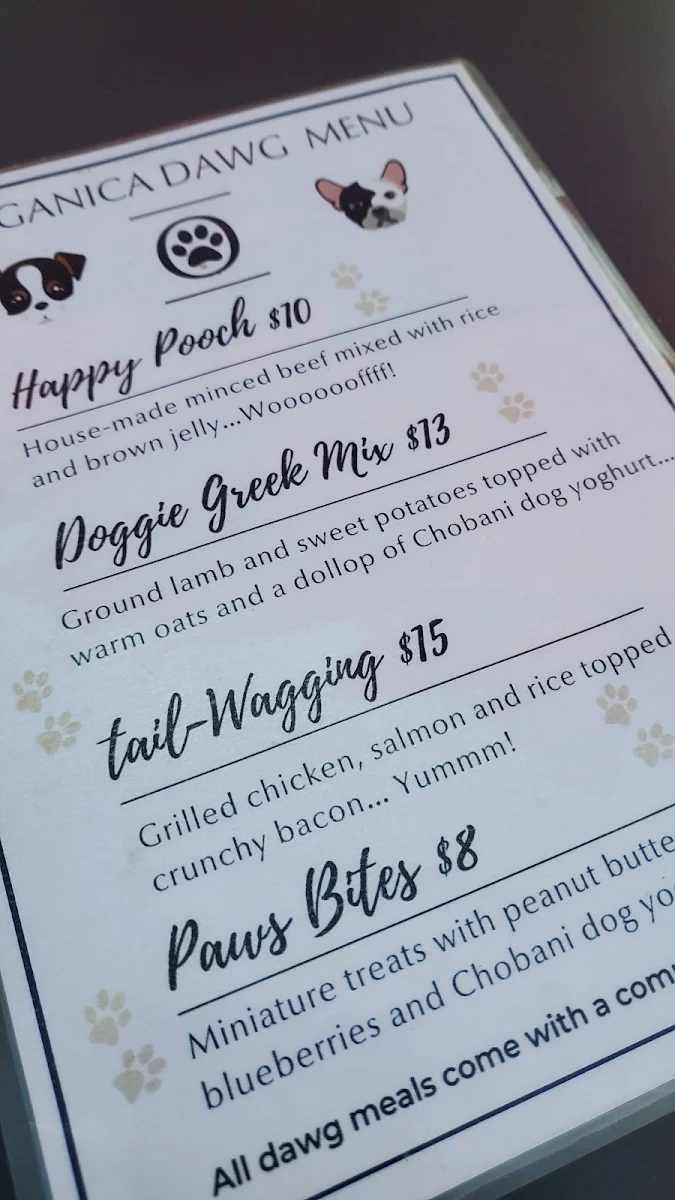 GANICA DAWG MENU
Happy Pooch $10
House-made minced beef mixed with rice
and brown jelly...Wooooooffff!
Doggie Greek Mix $13
Ground lamb and sweet potatoes topped with
warm oats and a dollop of Chobani dog yoghurt...
tail-Wagging $15
Grilled chicken, salmon and rice topped
crunchy bacon... Yummm!
Paws Bites $8
Miniature treats with peanut butte
blueberries and Chobani dog yo
All dawg meals come with a com